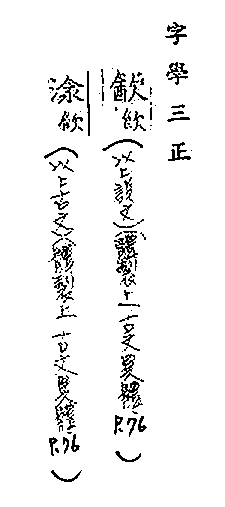 字學三正
㱃飲(以上說文)(體製上—古文異體P.76)
㳄飲(以上古文)(體製上—古文異體P.76)